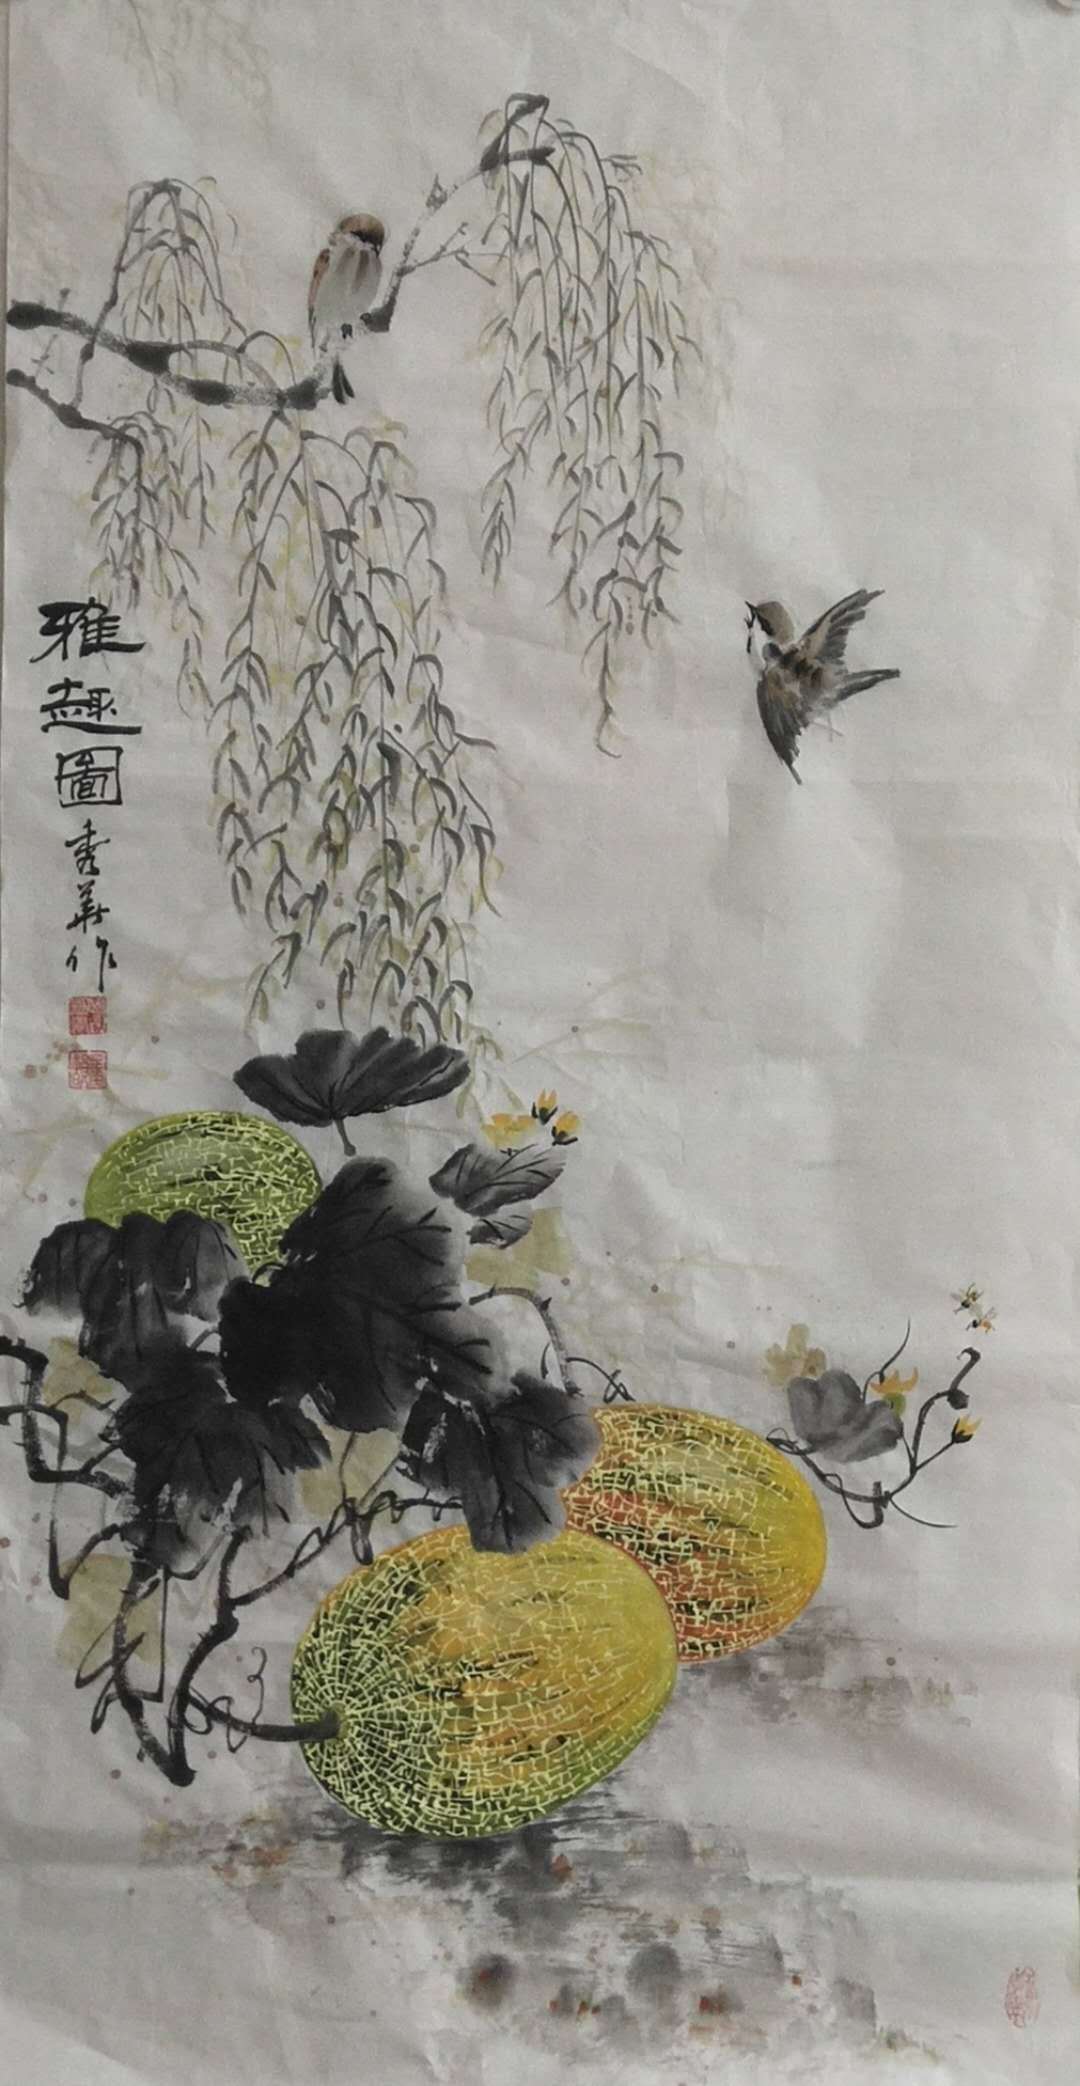 雅趣圖
秀華作